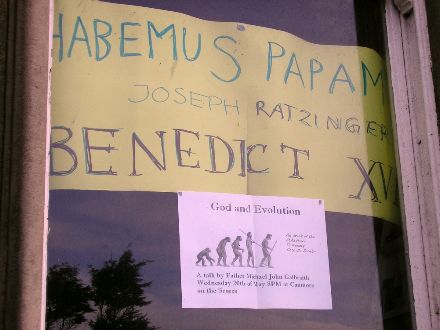 HABEMUS PAPAM
JOSEPH RATZINGER
BENEDICT XVI
God and Evolution
A talk by Father Michael John Galbraith
Wednesday 20th of 8PM at Canmore
on the Scores